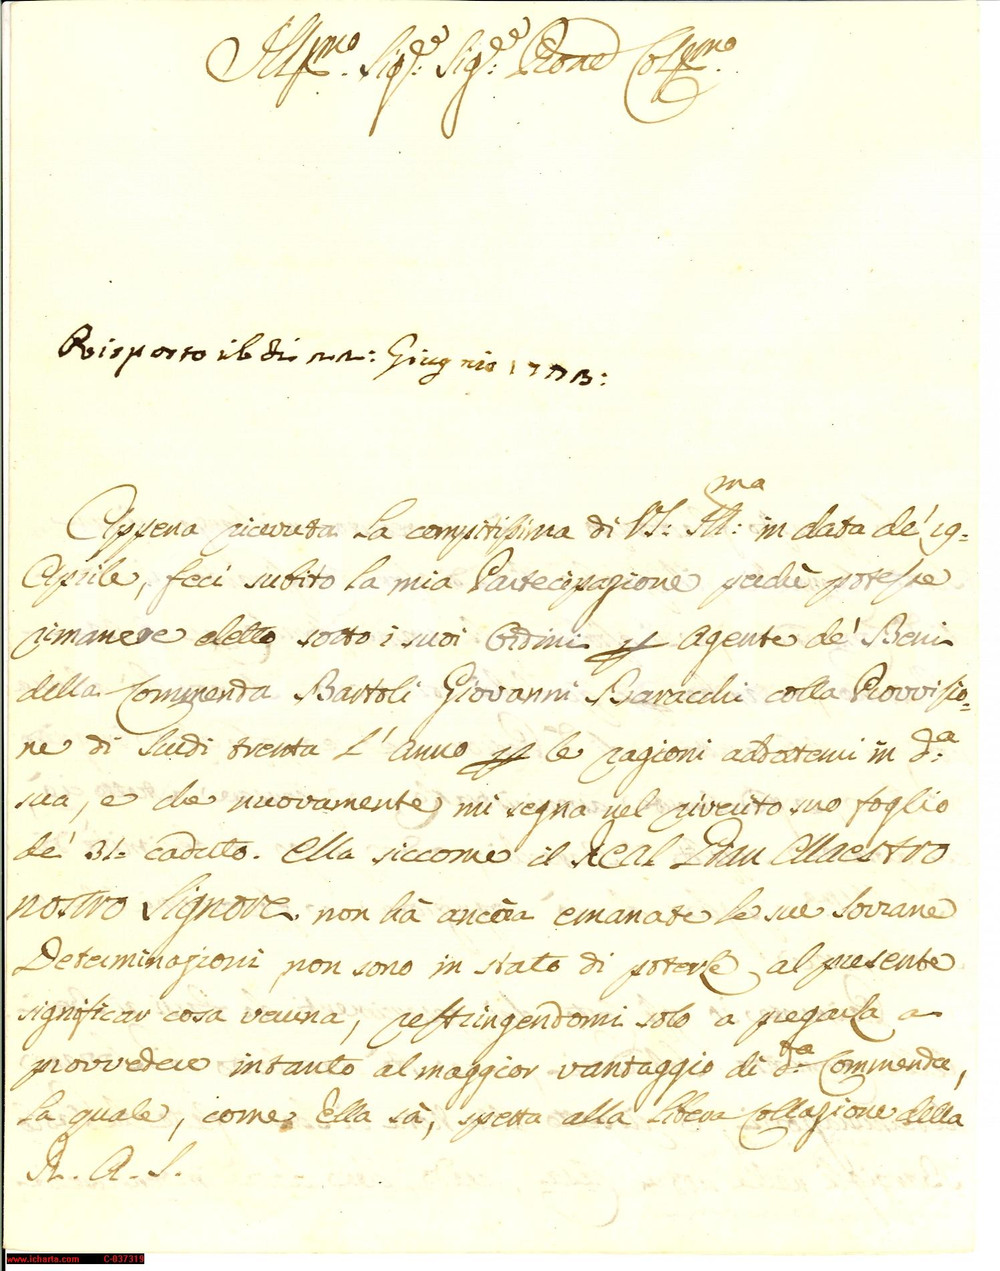 Ill.mo Sig.re Sig.re Prone Col.mo
Risposto il dì 22: Giugnio 1773:
Appena ricevuta la compitissima di VS: Ill:ma in data de' 19.
Aprile, feci subito la mia Partecipazione perchè potesse
rimanere eletto sotto i suoi Ordini p Agente de' Beni
della Commenda Bartoli Giovanni Baracchi colla Provvisio=
ne di Scudi trenta l'anno p le ragioni addottemi in d.a
sua, e che nuovamente mi segna nel riverito suo foglio
de' 31. caduto. Ella siccome il Real Gran Maestro
nostro Signore non hà ancora emanate le sue Sovrane
Determinazioni, non sono in stato di poterle al presente
significar cosa veruna, restringendomi solo a pregarla a
provvedere intanto al maggior vantaggio di d.ta Commenda,
la quale, come Ella sà, spetta alla libera Collazione della
R. A. S.
www.icharta.com C-037319